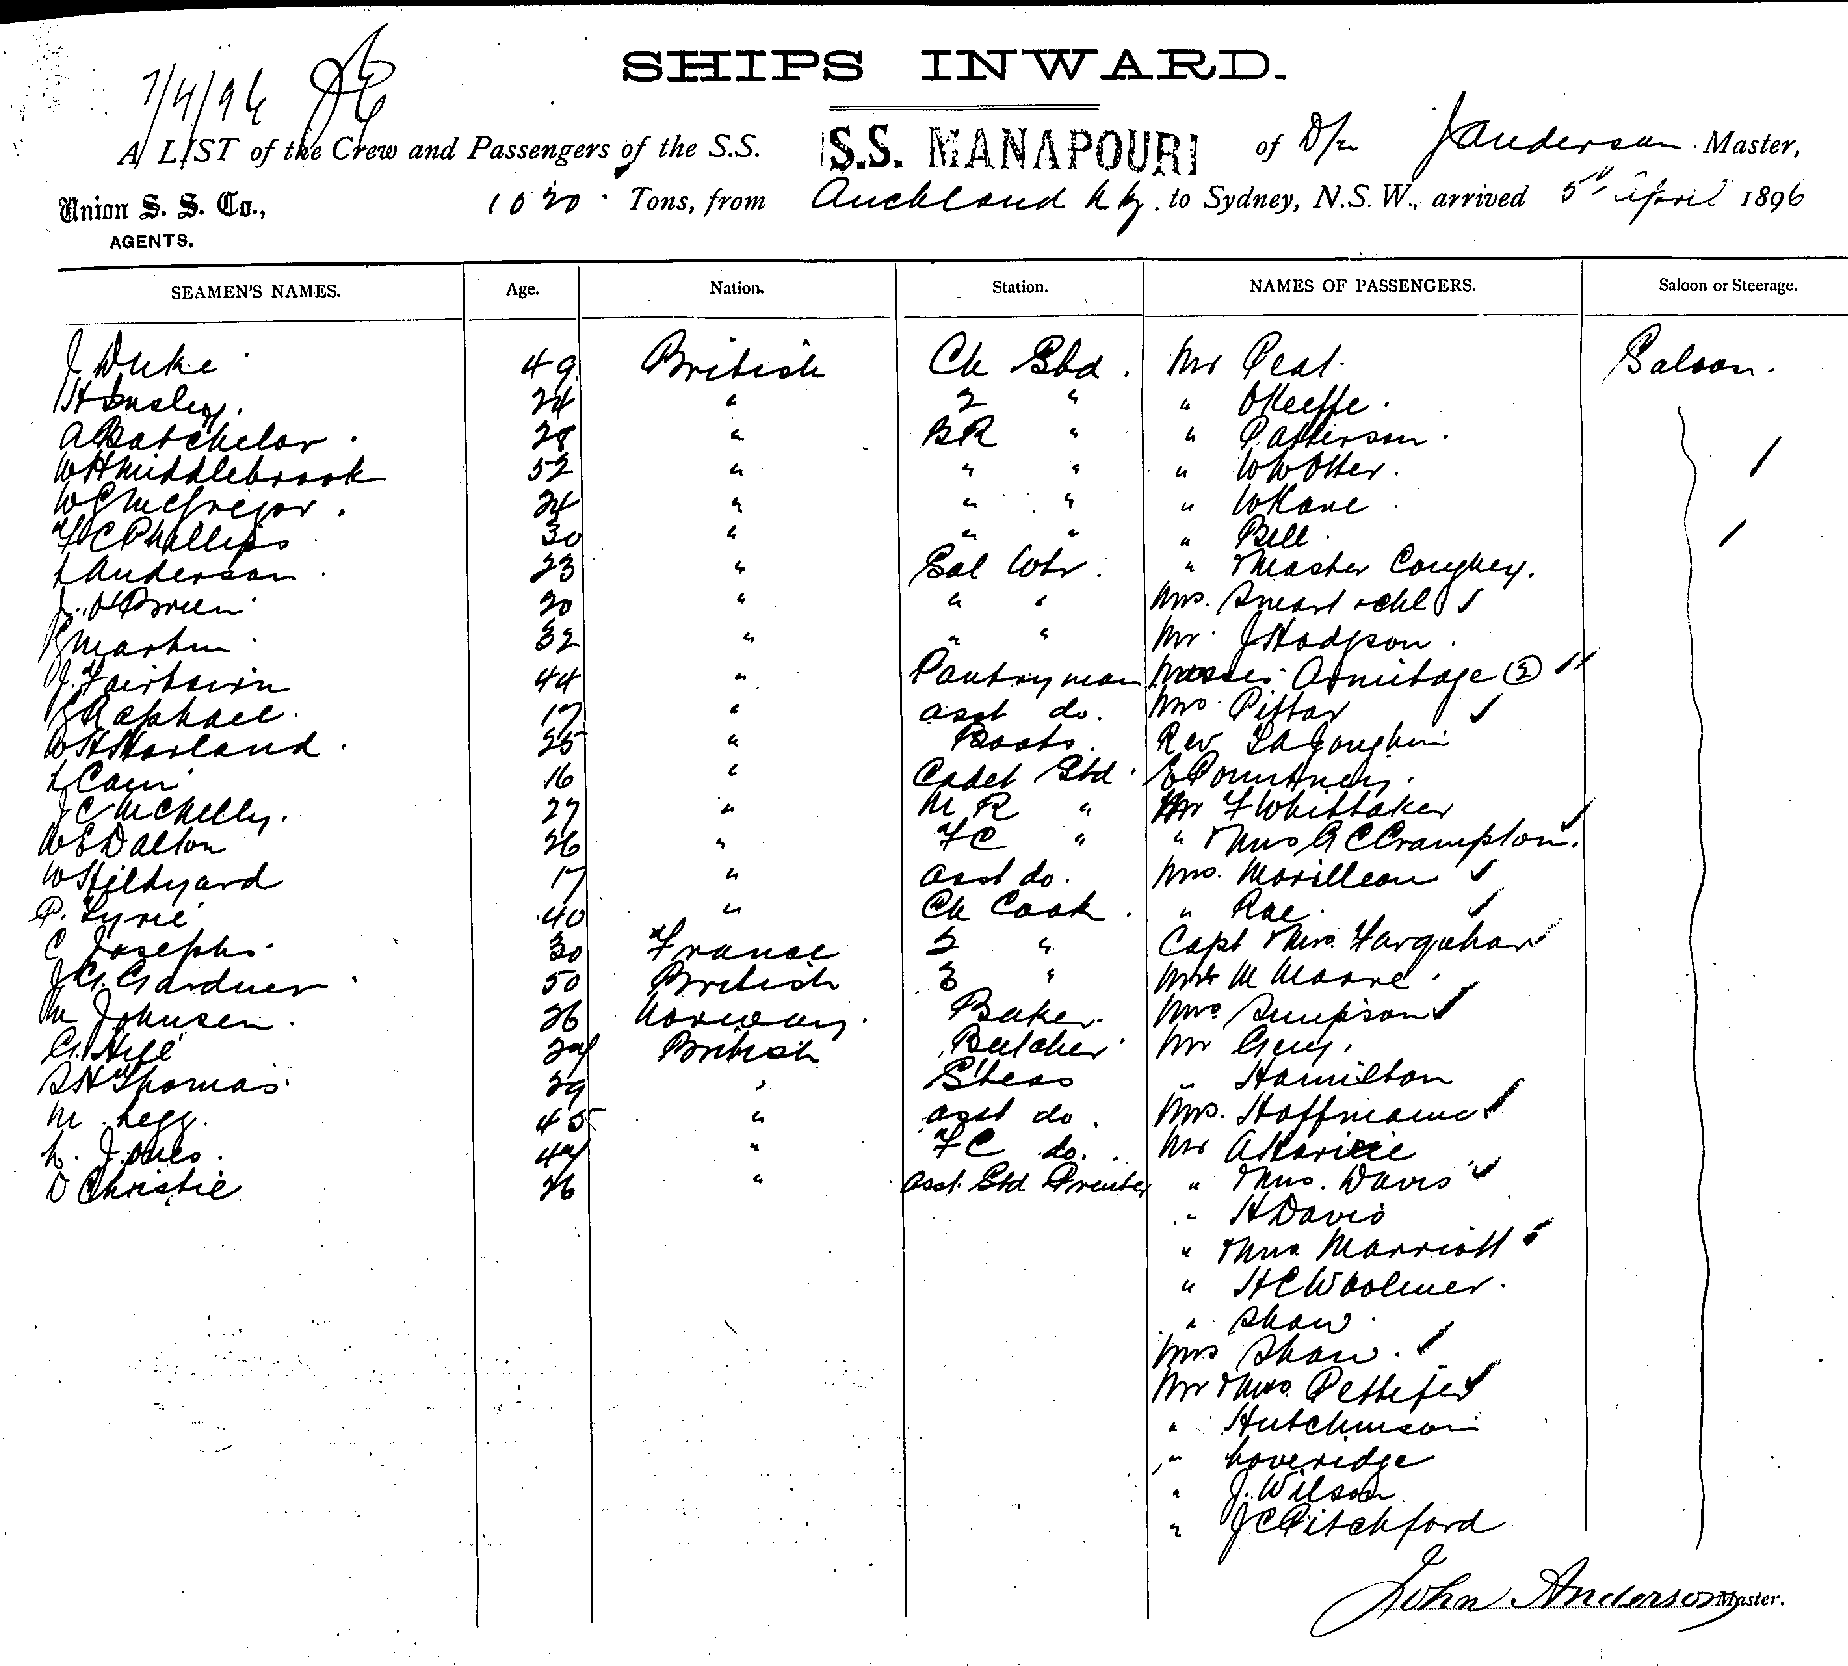 7/4/96
SHIPS INWARD.
A LIST of the Crew and Passengers of the S.S. S.S. MANAPOURI of D/n J Anderson Master,
Union S. S. Co., 1020 Tons, from Auckland N Z. to Sydney, N.S.W., arrived 5th April 1896
AGENTS.
SEAMEN'S NAMES. Age. Nation. Station. NAMES OF PASSENGERS. Saloon or Steerage.
J Duke 49 British Ch Std. Mr Peat. Saloon.
H Insley. 24 " 2 " " OKeeffe.
A Batchelor. 28 " BR " " Patterson.
W H Middlebrook 52 " " " " W W Otter.
W G McGregor. 24 " " " " W Kane
F C Phillips 30 " " " " Bell
L Anderson. 23 " Sal Wtr. " & Master Coughey.
J. O'Brien 20 " " " Mrs. Smart & chl
G Martin 32 " " " Mr. J Hodgson.
J. Fairbairn 44 " Pantryman Misses Armitage (2)
G Raphael. 17 " asst do. Mrs. Pittar
W H Harland. 25 " Boots. Rev
L Cain 16 " Cadet Std. E Pountney.
J C McNelly. 27 " M R " Mr F Whittaker
W E Dalton 26 " F C " " & Mrs G C Crampton.
W Hildyard 17 " asst do. Mrs. Morillean
P. Fyrie 40 " Ch Cook. " Rae.
C Josephs. 30 France 2 " Capt & Mrs. Farquhar
J G. Gardner 50 British 3 " M Moore.
M Johnsen. 26 Norway. Baker. Mrs. Simpson
G. Hill 24 British Butcher Mr Guy.
S H Thomas 29 " Stess " Hamilton
M Legg. 45 " asst do. Mrs. Hoffmann
L. Jones. 44 " F C do. Mr A
D Christie 26 " asst. Std Printer " & Mrs. Davis
" H Davis
" & Mrs Marriott
" H C Woolmer.
" Shaw.
Mrs Shaw.
Mr & Mrs. Pettifer
" Hutchinson
" Loveridge
" J. Wilson
" J C Pitchford
John Anderson Master.